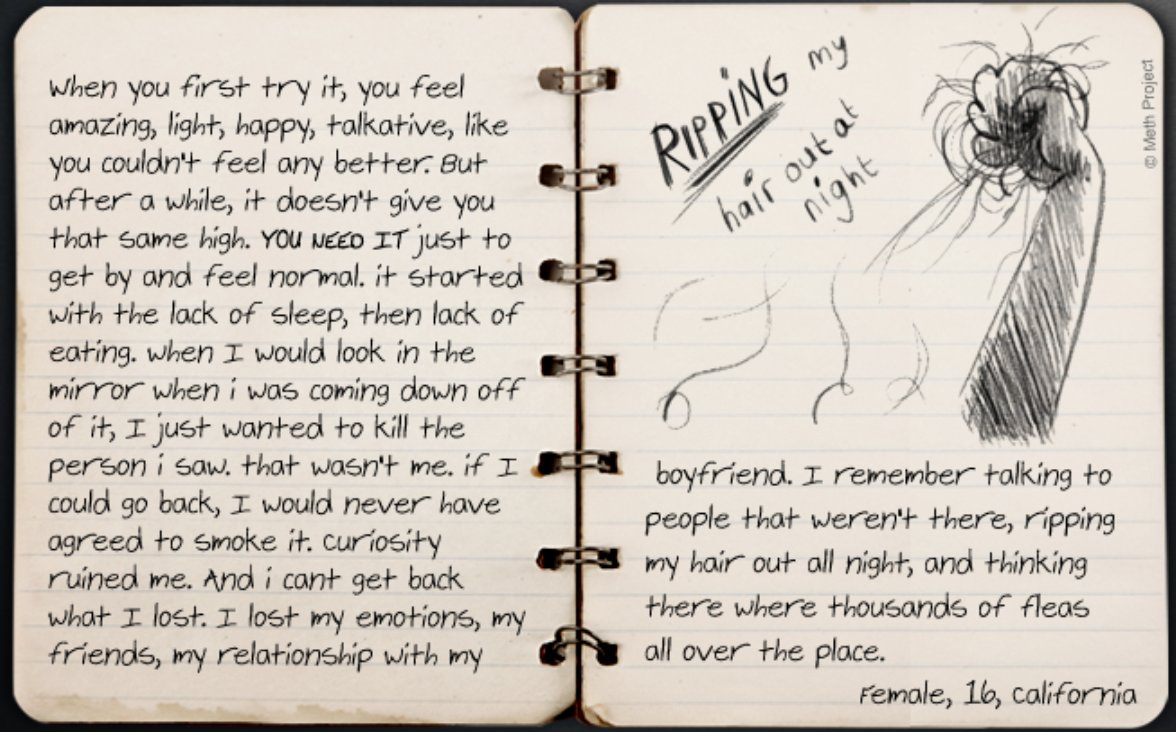 when you first try it, you feel
amazing, light, happy, talkative, like
you couldn't feel any better. But
after a while, it doesn't give you
that same high. YOU NEED IT just to
get by and feel normal. it started
with the lack of sleep, then lack of
eating. when I would look in the
mirror when i was coming down off
of it, I just wanted to kill the
person i saw. that wasn't me. if I
could go back, I would never have
agreed to smoke it. curiosity
ruined me. And i cant get back
what I lost. I lost my emotions, my
friends, my relationship with my
RIPPING my
hair out at
night
© Meth Project
boyfriend. I remember talking to
people that weren't there, ripping
my hair out all night, and thinking
there where thousands of fleas
all over the place.
Female, 16, California